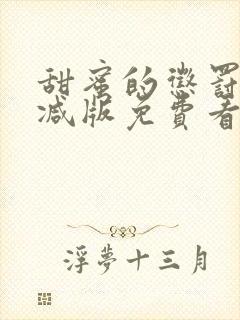 甜蜜的懲罰
减版免費看
浮夢十三月